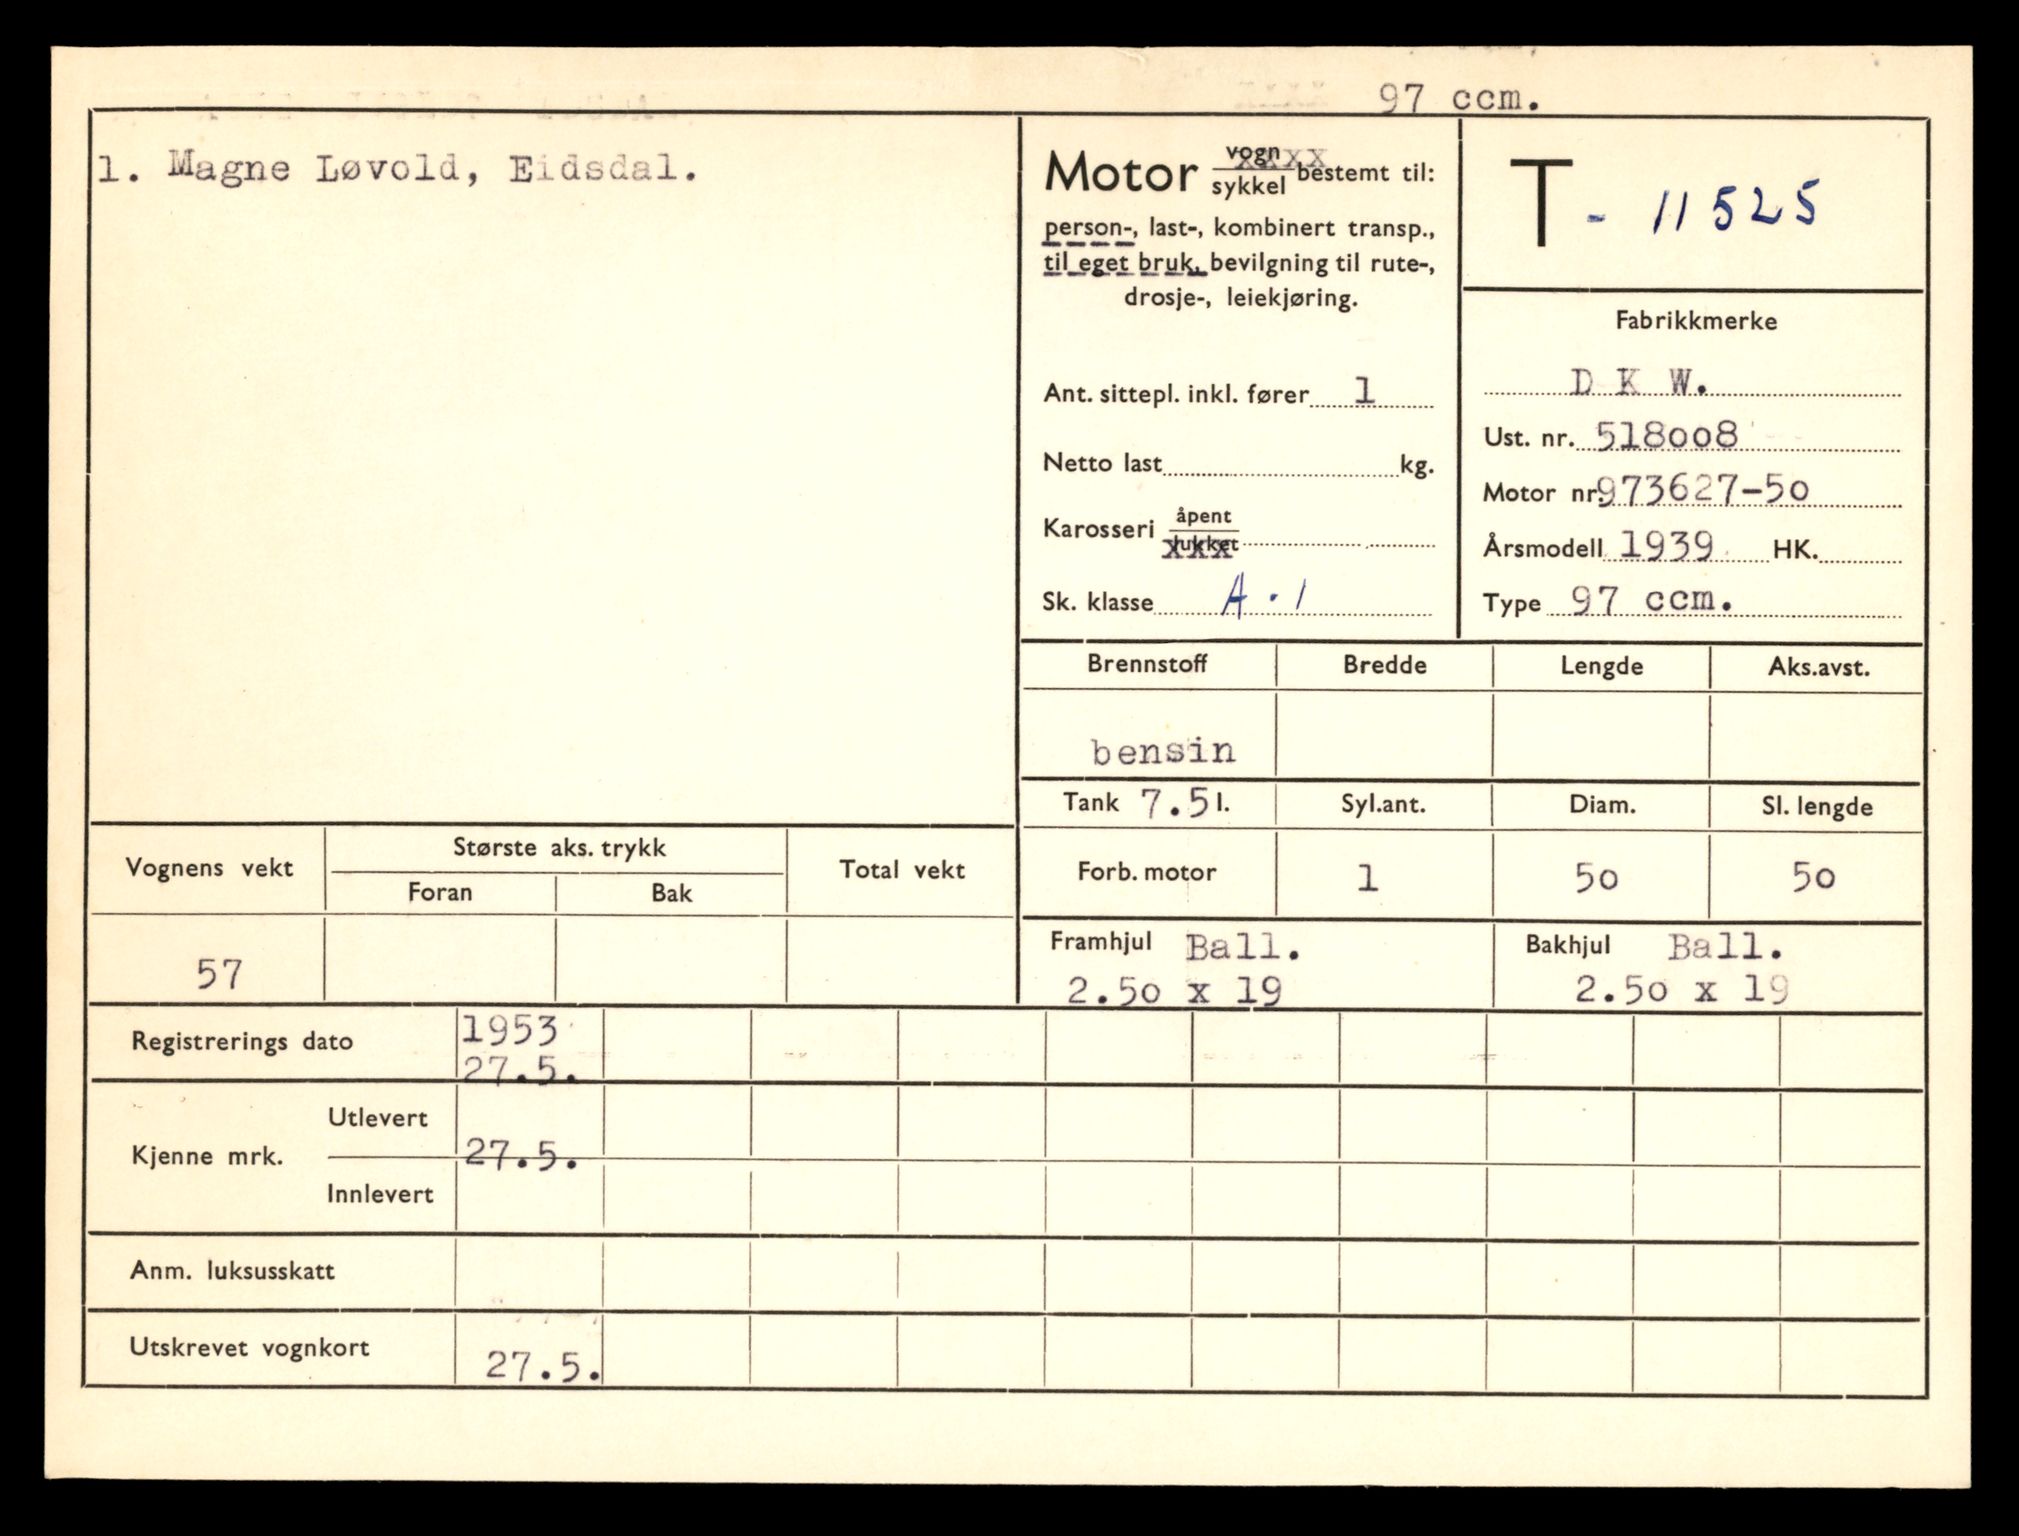 97 ccm.
1. Magne Løvold, Eidsdal.
Motor vogn xxxx sykkel bestemt til:
person-, last-, kombinert transp.,
til eget bruk, bevilgning til rute-,
drosje-, leiekjøring.
Ant. sittepl. inkl. fører 1
Netto last kg.
Karosseri åpent lukket xxx
Sk. klasse A. 1
T - 11525
Fabrikkmerke
D K W.
Ust. nr. 518008
Motor nr. 973627-50
Årsmodell 1939 HK.
Type 97 ccm.
Brennstoff Bredde Lengde Aks.avst.
bensin
Tank 7.5 l. Syl.ant. Diam. Sl. lengde
Forb. motor 1 50 50
Framhjul Ball. Bakhjul Ball.
2.50 x 19 2.50 x 19
Vognens vekt Største aks. trykk Total vekt
Foran Bak
57
Registrerings dato 1953
27.5.
Kjenne mrk. Utlevert
27.5.
Innlevert
Anm. luksusskatt
Utskrevet vognkort 27.5.